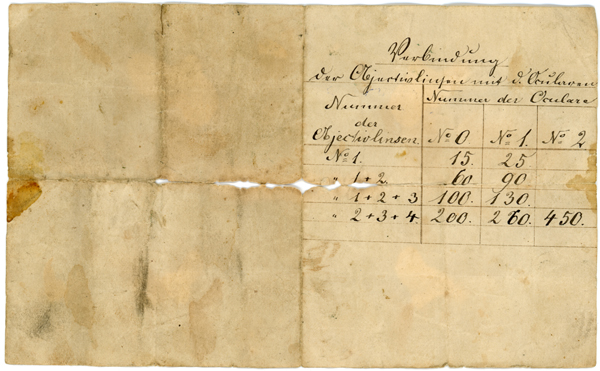 Verbindung
der Objectivlinsen mit d. Ocularen
Nummer der Objectivlinsen. Nummer der Oculare
№ 0 № 1. № 2
№ 1. 15. 25
" 1+2. 60. 90
" 1+2+3 100. 130.
" 2+3+4. 200. 260. 450.